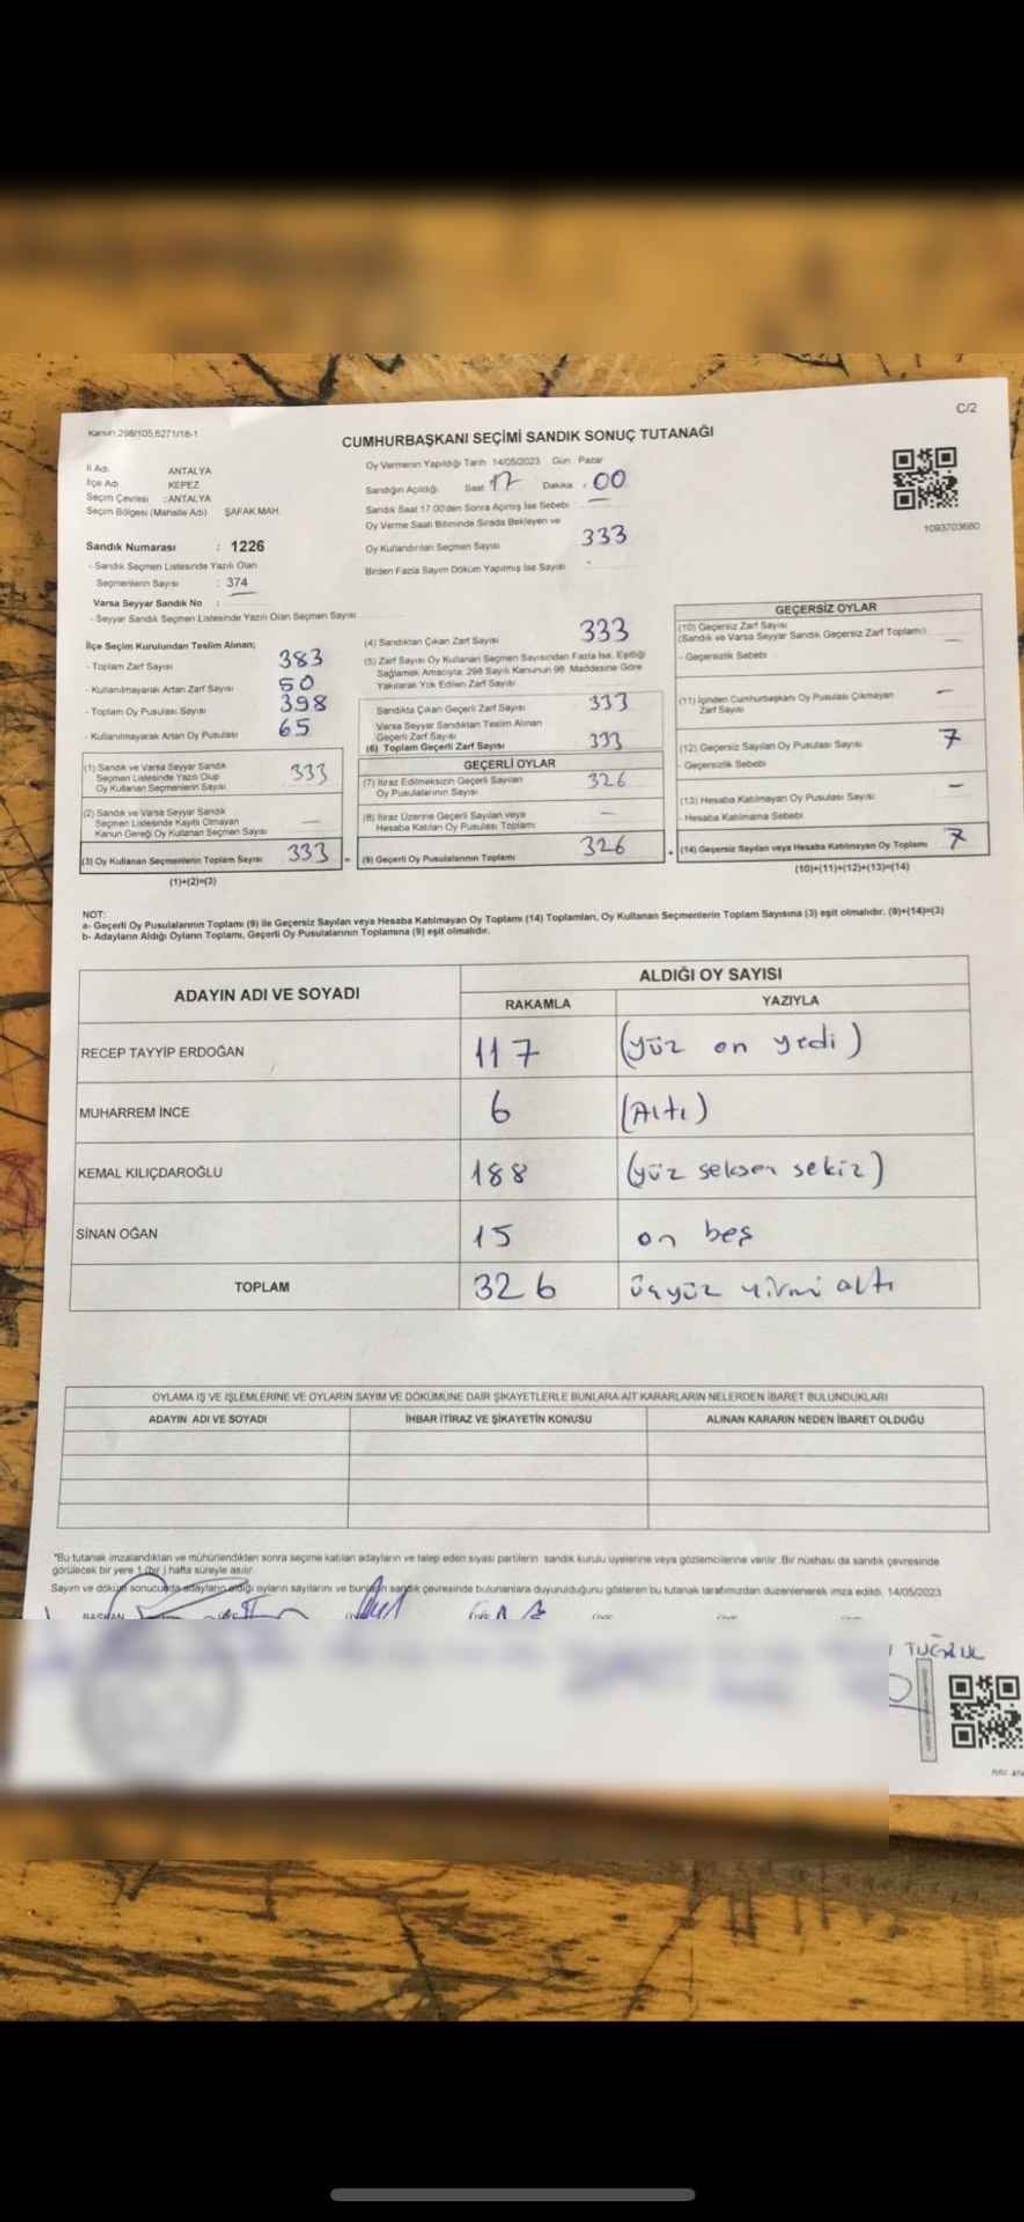 C/2
Kanun 298/105,6271/18-1
CUMHURBAŞKANI SEÇİMİ SANDIK SONUÇ TUTANAĞI
İl Adı ANTALYA
İlçe Adı KEPEZ
Seçim Çevresi : ANTALYA
Seçim Bölgesi (Mahalle Adı) ŞAFAK MAH.
Oy Vermenin Yapıldığı Tarih 14/05/2023 Gün Pazar
Sandığın Açıldığı Saat 17 Dakika : 00
Sandık Saat 17.00'den Sonra Açılmış İse Sebebi —
Oy Verme Saati Bitiminde Sırada Bekleyen ve
Oy Kullandırılan Seçmen Sayısı 333
Birden Fazla Sayım Döküm Yapılmış İse Sayısı -
1093703660
Sandık Numarası : 1226
- Sandık Seçmen Listesinde Yazılı Olan
Seçmenlerin Sayısı : 374
Varsa Seyyar Sandık No :
- Seyyar Sandık Seçmen Listesinde Yazılı Olan Seçmen Sayısı
İlçe Seçim Kurulundan Teslim Alınan;
- Toplam Zarf Sayısı 383
- Kullanılmayarak Artan Zarf Sayısı 50
- Toplam Oy Pusulası Sayısı 398
- Kullanılmayarak Artan Oy Pusulası 65
(1) Sandık ve Varsa Seyyar Sandık
Seçmen Listesinde Yazılı Olup
Oy Kullanan Seçmenlerin Sayısı 333
(2) Sandık ve Varsa Seyyar Sandık
Seçmen Listesinde Kayıtlı Olmayan
Kanun Gereği Oy Kullanan Seçmen Sayısı —
(3) Oy Kullanan Seçmenlerin Toplam Sayısı 333
(1)+(2)=(3)
(4) Sandıktan Çıkan Zarf Sayısı 333
(5) Zarf Sayısı Oy Kullanan Seçmen Sayısından Fazla İse, Eşitliği
Sağlamak Amacıyla; 298 Sayılı Kanunun 98. Maddesine Göre
Yakılarak Yok Edilen Zarf Sayısı
Sandıkta Çıkan Geçerli Zarf Sayısı 333
Varsa Seyyar Sandıktan Teslim Alınan
Geçerli Zarf Sayısı
(6) Toplam Geçerli Zarf Sayısı 333
GEÇERLİ OYLAR
(7) İtiraz Edilmeksizin Geçerli Sayılan
Oy Pusulalarının Sayısı 326
(8) İtiraz Üzerine Geçerli Sayılan veya
Hesaba Katılan Oy Pusulası Toplamı —
(9) Geçerli Oy Pusulalarının Toplamı 326
GEÇERSİZ OYLAR
(10) Geçersiz Zarf Sayısı
(Sandık ve Varsa Seyyar Sandık Geçersiz Zarf Toplamı) —
- Geçersizlik Sebebi
(11) İçinden Cumhurbaşkanı Oy Pusulası Çıkmayan
Zarf Sayısı —
(12) Geçersiz Sayılan Oy Pusulası Sayısı 7
- Geçersizlik Sebebi
(13) Hesaba Katılmayan Oy Pusulası Sayısı —
- Hesaba Katılmama Sebebi
(14) Geçersiz Sayılan veya Hesaba Katılmayan Oy Toplamı 7
(10)+(11)+(12)+(13)=(14)
NOT:
a- Geçerli Oy Pusulalarının Toplamı (9) ile Geçersiz Sayılan veya Hesaba Katılmayan Oy Toplamı (14) Toplamları, Oy Kullanan Seçmenlerin Toplam Sayısına (3) eşit olmalıdır. (9)+(14)=(3)
b- Adayların Aldığı Oyların Toplamı, Geçerli Oy Pusulalarının Toplamına (9) eşit olmalıdır.
ADAYIN ADI VE SOYADI
ALDIĞI OY SAYISI
RAKAMLA YAZIYLA
RECEP TAYYİP ERDOĞAN 117 (yüz on yedi)
MUHARREM İNCE 6 (Altı)
KEMAL KILIÇDAROĞLU 188 (yüz seksen sekiz)
SİNAN OĞAN 15 on beş
TOPLAM 326 üçyüz yirmi altı
OYLAMA İŞ VE İŞLEMLERİNE VE OYLARIN SAYIM VE DÖKÜMÜNE DAİR ŞİKAYETLERLE BUNLARA AİT KARARLARIN NELERDEN İBARET BULUNDUKLARI
ADAYIN ADI VE SOYADI İHBAR İTİRAZ VE ŞİKAYETİN KONUSU ALINAN KARARIN NEDEN İBARET OLDUĞU
"Bu tutanak imzalandıktan ve mühürlendikten sonra seçime katılan adayların ve talep eden siyasi partilerin sandık kurulu üyelerine veya gözlemcilerine verilir. Bir nüshası da sandık çevresinde
görülecek bir yere 1 (bir) hafta süreyle asılır.
Sayım ve döküm sonucunda adayların aldığı oyların sayılarını ve bunların sandık çevresinde bulunanlara duyurulduğunu gösteren bu tutanak tarafımızdan düzenlenerek imza edildi. 14/05/2023
BAŞKAN
TUĞRUL